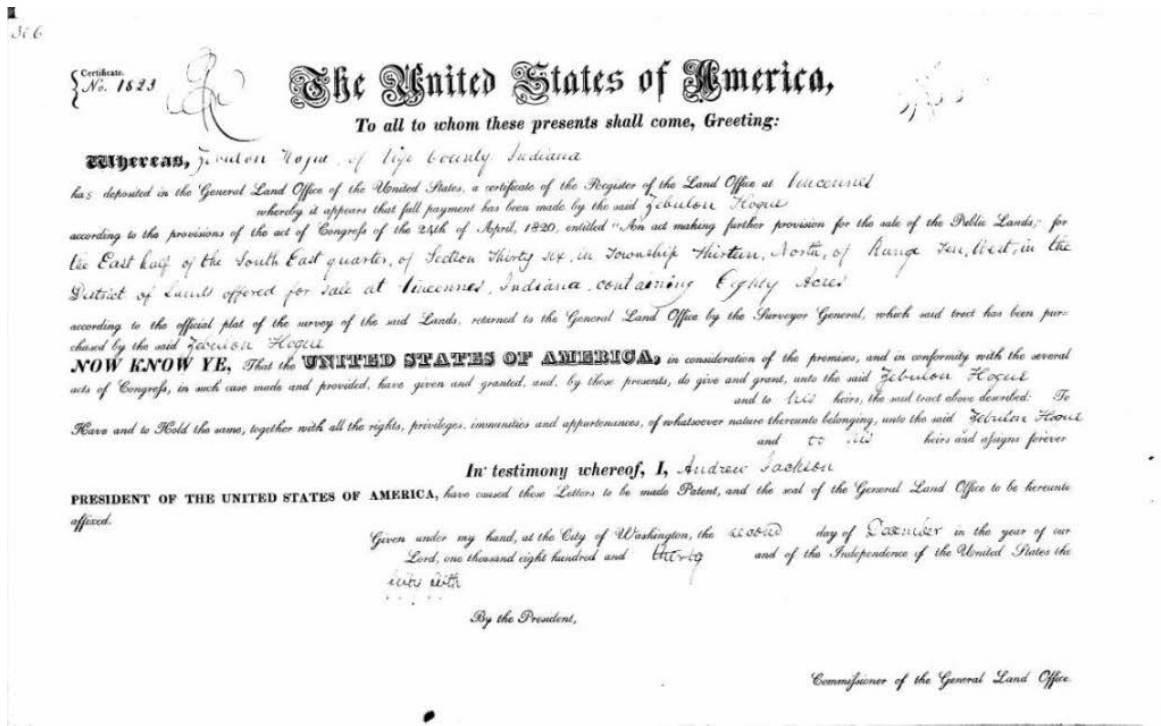 306
Certificate.
No. 1823
The United States of America,
To all to whom these presents shall come, Greeting:
Whereas, Zebulon Hogue, of Vigo County Indiana
has deposited in the General Land Office of the United States, a certificate of the Register of the Land Office at Vincennes
whereby it appears that full payment has been made by the said Zebulon Hogue
according to the provisions of the act of Congress of the 24th of April, 1820, entitled "An act making further provision for the sale of the Public Lands;" for
the East half of the South East quarter, of Section Thirty six, in Township Thirteen, North, of Range Ten, West, in the
District of Lands offered for sale at Vincennes, Indiana, containing Eighty Acres
according to the official plat of the survey of the said Lands, returned to the General Land Office by the Surveyor General, which said tract has been pur-
chased by the said Zebulon Hogue
NOW KNOW YE, That the UNITED STATES OF AMERICA, in consideration of the premises, and in conformity with the several
acts of Congress, in such case made and provided, have given and granted, and, by these presents, do give and grant, unto the said Zebulon Hogue
and to his heirs, the said tract above described: To
Have and to Hold the same, together with all the rights, privileges, immunities and appurtenances, of whatsoever nature thereunto belonging, unto the said Zebulon Hogue
and to his heirs and assigns forever
In testimony whereof, I, Andrew Jackson
PRESIDENT OF THE UNITED STATES OF AMERICA, have caused these Letters to be made Patent, and the seal of the General Land Office to be hereunto
affixed.
Given under my hand, at the City of Washington, the second day of December in the year of our
Lord, one thousand eight hundred and thirty and of the Independence of the United States the
fifty fifth
By the President,
Commissioner of the General Land Office.